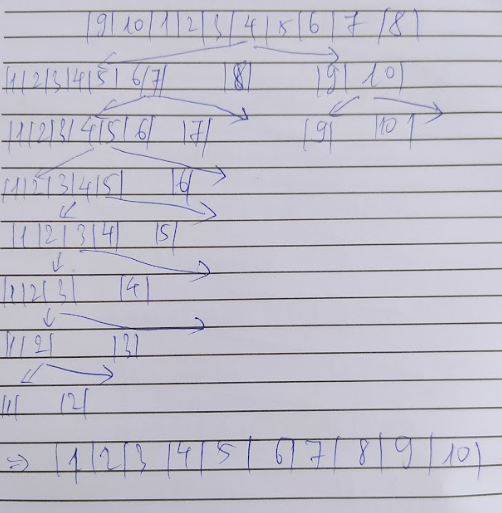 |9|10|1|2|3|4|5|6|7|8|
|1|2|3|4|5|6|7| |8| |9|10|
|1|2|3|4|5|6| |7| |9| |10|
|1|2|3|4|5| |6|
|1|2|3|4| |5|
|1|2|3| |4|
|1|2| |3|
|1| |2|
⇒ |1|2|3|4|5|6|7|8|9|10|